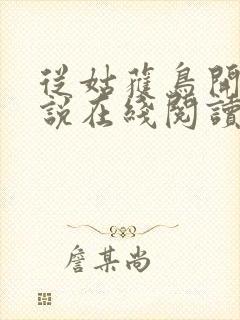 從姑蘿鳥開
說在綫閱讀
詹某尚